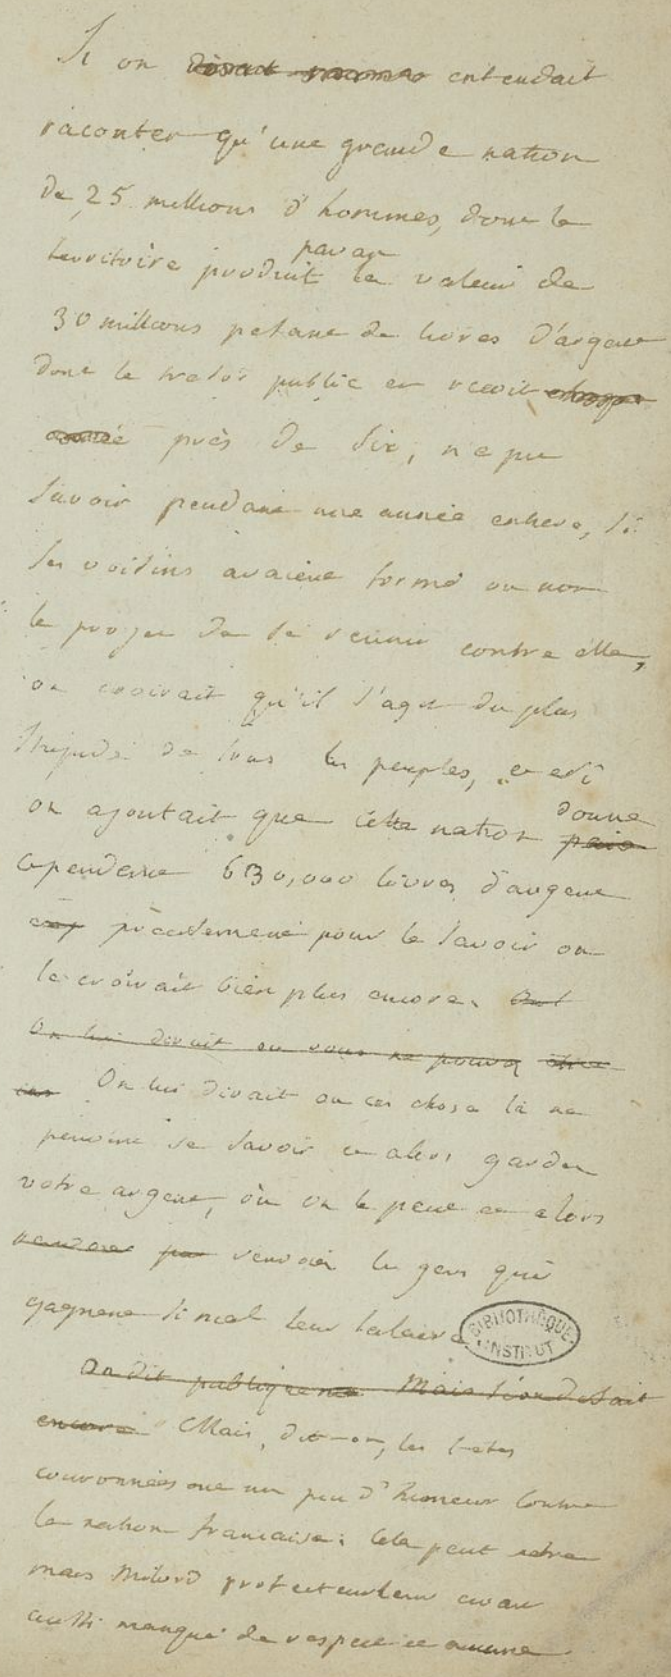 Si on entendait
raconter qu'une grande nation
de 25 millions d'hommes, dont le
territoire produit par an la valeur de
30 millions pesant de livres d'argent
dont le tresor public en recoit
année près de six, n'a pu
savoir pendant une année entiere, si
ses voisins avaient formé ou non
le projet de se reunir contre elle,
on croirait qu'il s'agit du plus
stupide de tous les peuples, et si
on ajoutait que cette nation donne paie
cependant 630,000 livres d'argent
précisement pour le savoir on
le croirait bien plus encore.
On lui dirait ou vous ne pouvez
On lui dirait ou ces chose là ne
peuvent se savoir et alors gardez
votre argent, ou on le peut et alors
renvoiez les gens qui
gagnent si mal leur salaire
BIBLIOTHÈQUE INSTITUT
On dit publiquement Mais si on disait
encore Mais, dit-on, les têtes
couronnées ont un peu d'humeur contre
la nation francaise: cela peut etre
mais Milord protecteur leur avait
aussi manqué de respect et